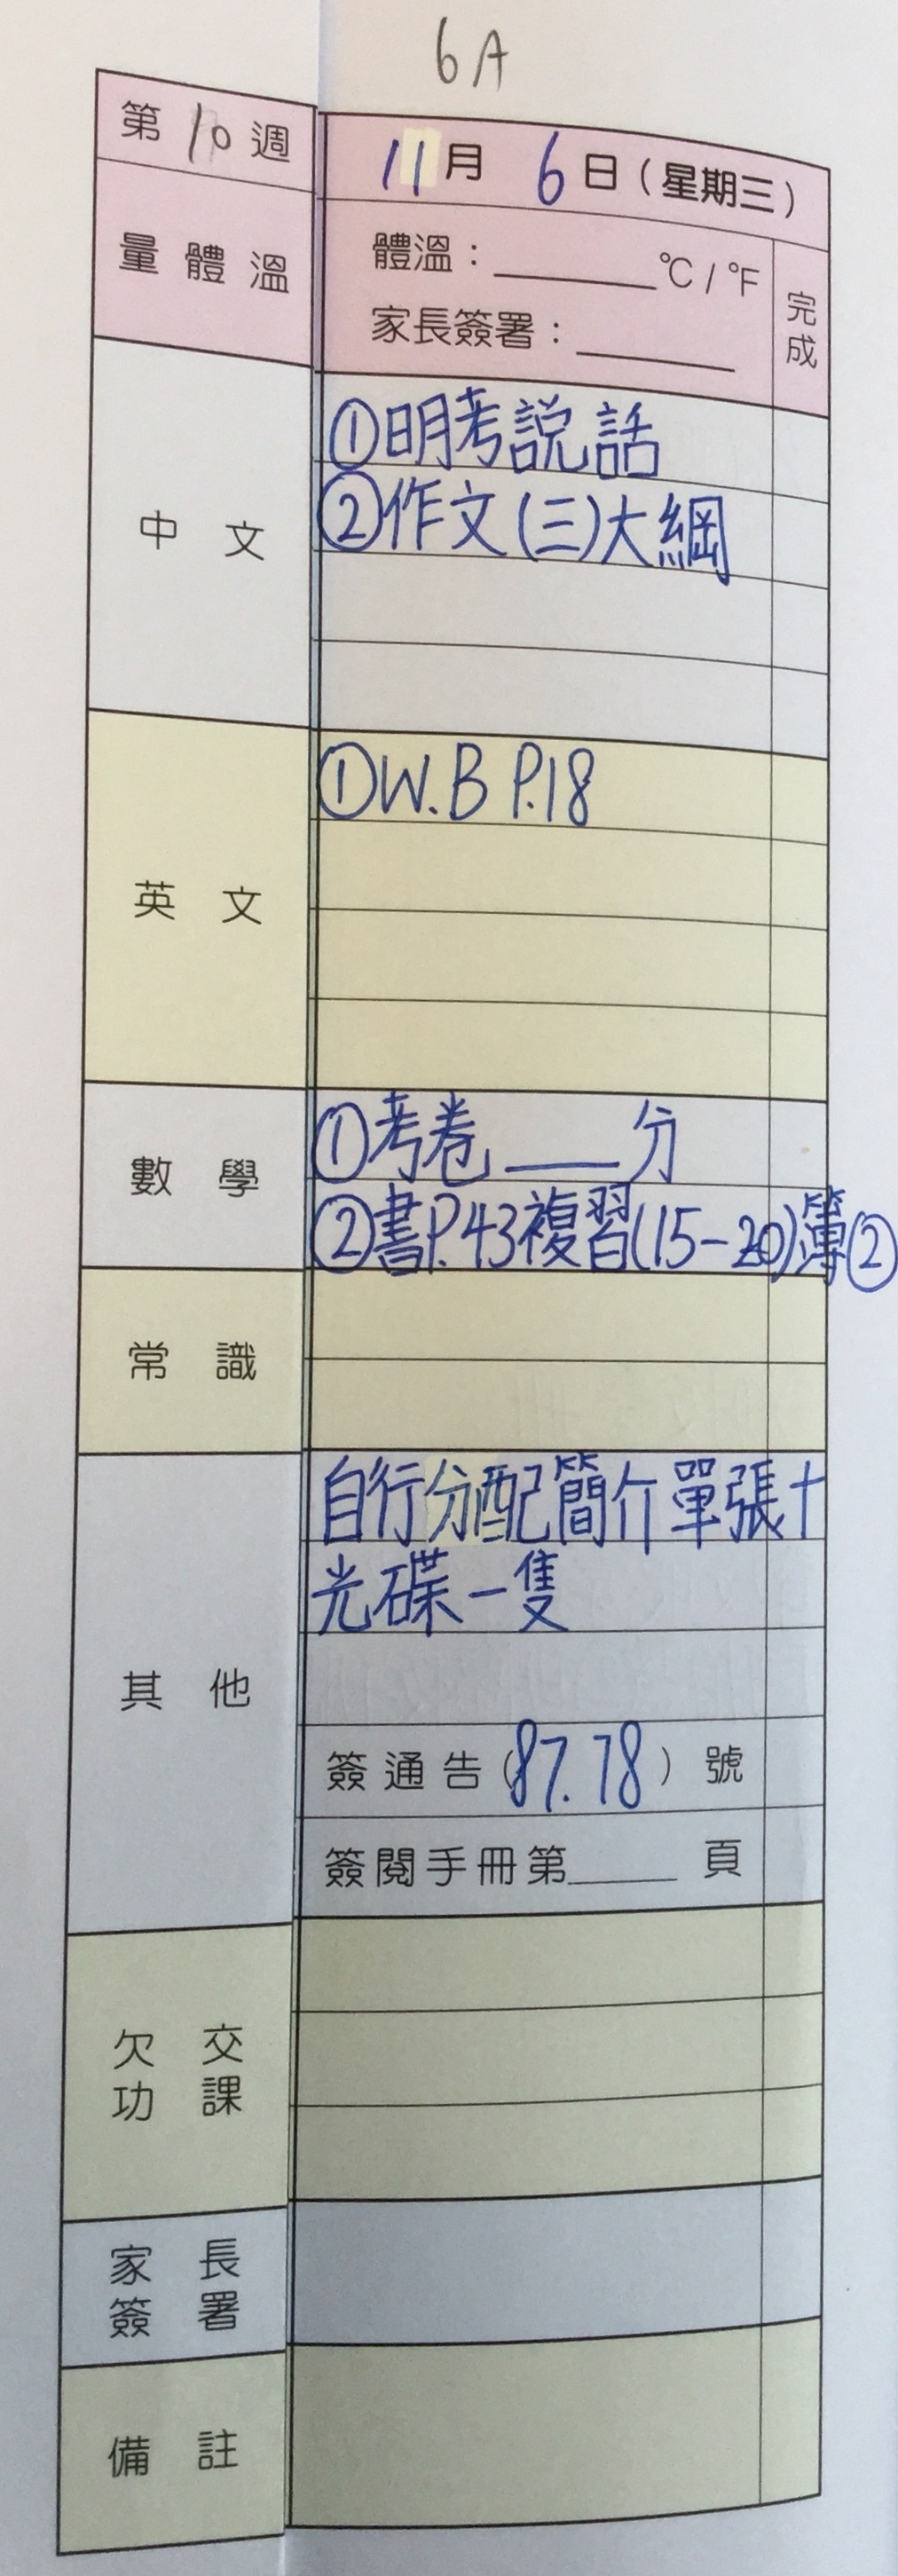 6A
第10週
11月 6日(星期三)
量體溫
體溫：______°C / °F
家長簽署：______
完成
中文
①明考說話
②作文(三)大綱
英文
①W.B P.18
數學
①考卷____分
②書P.43複習(15-20)簿②
常識
其他
自行分配簡介單張+
光碟一隻
簽通告(87.78)號
簽閱手冊第____頁
欠交
功課
家長
簽署
備註